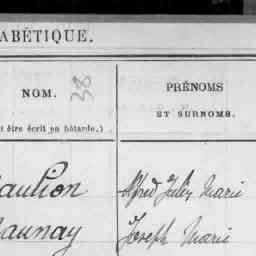 ABÉTIQUE.
NOM.
38
PRÉNOMS
ET SURNOMS.
être écrit en bâtarde.)
Alfred Jules Marie
aunay
Joseph Marie